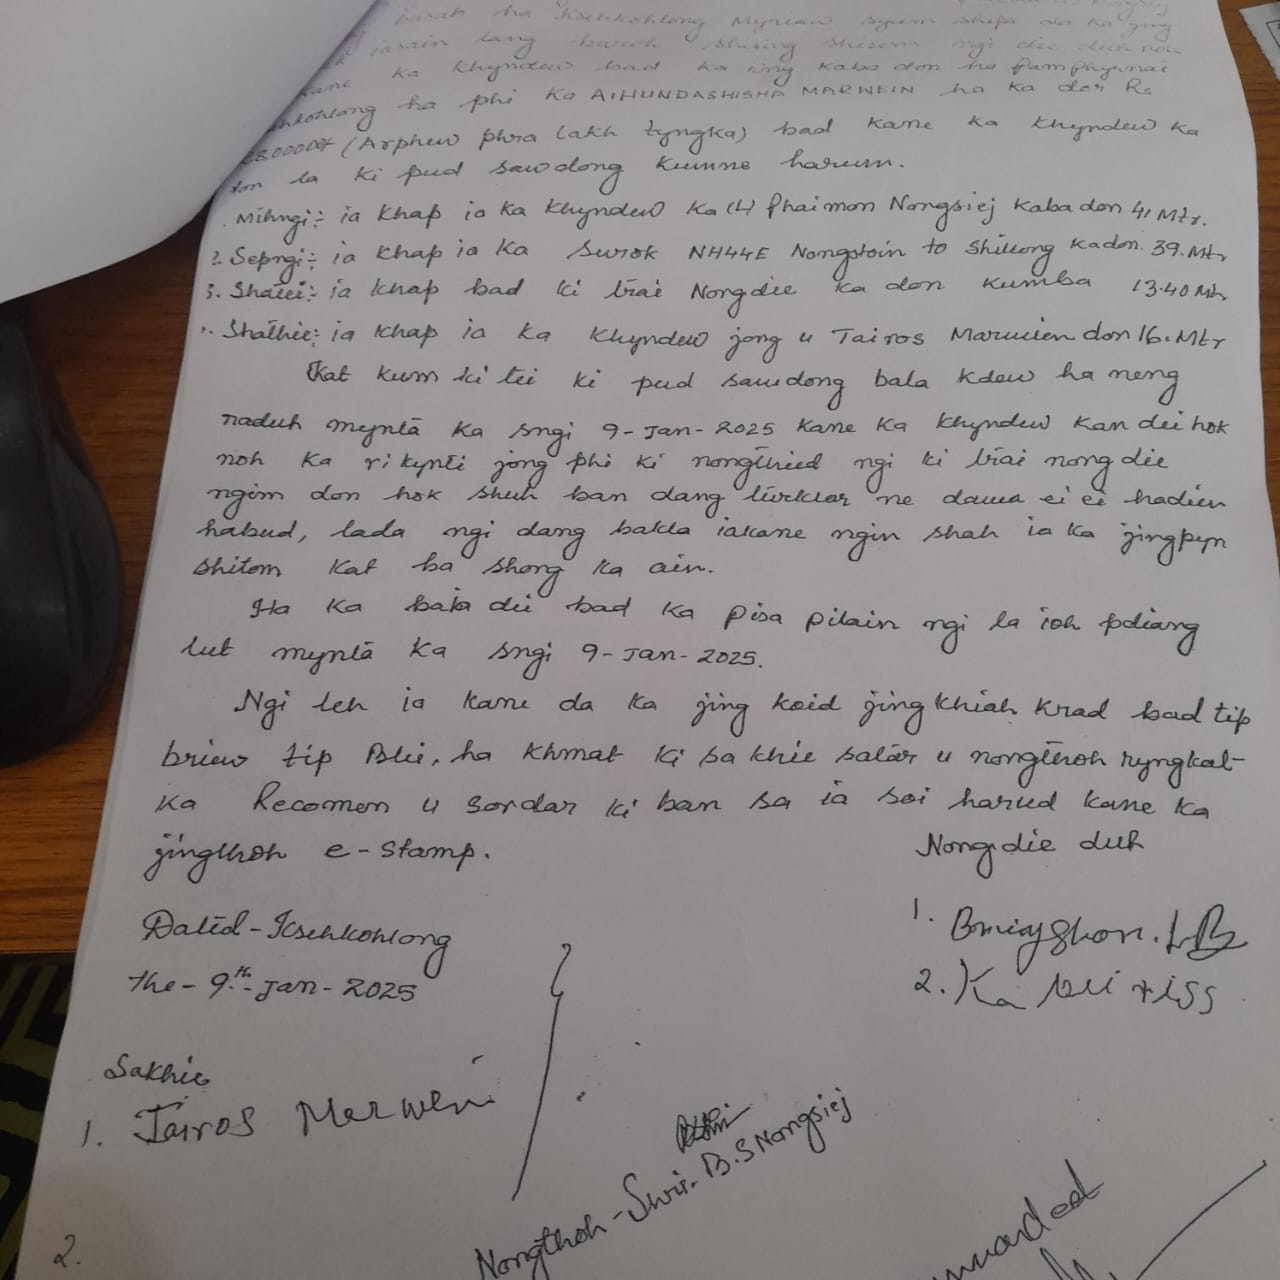 barab ha Ksehkohlong Myriaw syiem ship da ka jing
iasain lang baroh shising shisem ngi die duh noh
kane ka khyndew bad ka iing kaba don ha Pamphyrnai
ksehkohlong ha phi Ka AIHUNDASHISHA MARWEIN ha ka dor Rs
(Arphew phra lakh tyngka) bad kane ka khyndew ka
don la ki pud sawdong kumne harum.
Mihngi:- ia khap ia ka khyndew ka (L) Phaimon Nongsiej kaba don 41 Mtr.
2. Sepngi:- ia khap ia ka surok NH44E Nongstoin to Shillong ka don. 39. Mtr
3. Shatei:- ia khap bad ki trai Nongdie ka don kumba 13.40 Mtr
Shathie:- ia khap ia ka khyndew jong u Tairos Marwien don 16. Mtr
Kat kum ki tei ki pud sawdong bala kdew ha neng
naduh mynta ka sngi 9-Jan-2025 kane ka khyndew kan dei hok
noh ka ri kynti jong phi ki nongthied ngi ki trai nong die
ngim don hok shuh ban dang turklar ne dawa ei ei hadien
habud, lada ngi dang bakla iakane ngin shah ia ka jingpyn
shitom kat ba shong ka ain.
Ha ka bala dei bad ka pisa pilain ngi la ioh pdiang
lut mynta ka sngi 9-Jan-2025.
Ngi leh ia kane da ka jing koid jing khiah krad bad tip
briew tip Blei, ha khmat ki sakhie salar u nongthoh ryngkat-
ka Recomen u Sordar ki ban sa ia soi harud kane ka
jingthoh e-stamp.
Nongdie duh
Dated-Ksehkohlong
the-9th-Jan-2025
1.
2. Ka
Sakhie
1. Tairos Merwein
Nongthoh-Swir. B.S Nongsiej
2.